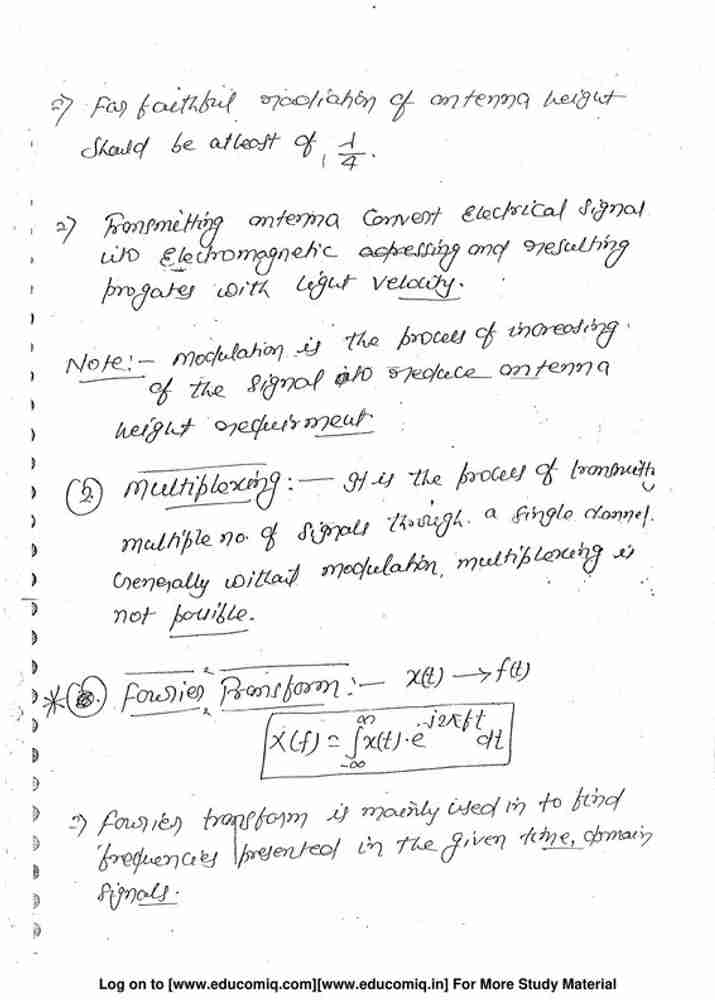 ⇒) For faithful radiation of antenna height
should be atleast of λ/4.
2) Transmitting antenna convert Electrical signal
into Electromagnetic and resulting
progates with light velocity.
Note:- modulation is the process of increasing
of the signal to reduce antenna
height requirment
(2) multiplexing:- It is the process of transmitting
multiple no. of signals through a single channel.
Generally without modulation, multiplexing is
not possible.
* Fourier Transform:- x(t) → f(t)
X(f) = ∫_{-∞}^{∞} x(t)·e^{-j2πft} dt
⇒) Fourier transform is mainly used in to find
frequencies presented in the given time, domain
signals.
Log on to [www.educomiq.com][www.educomiq.in] For More Study Material